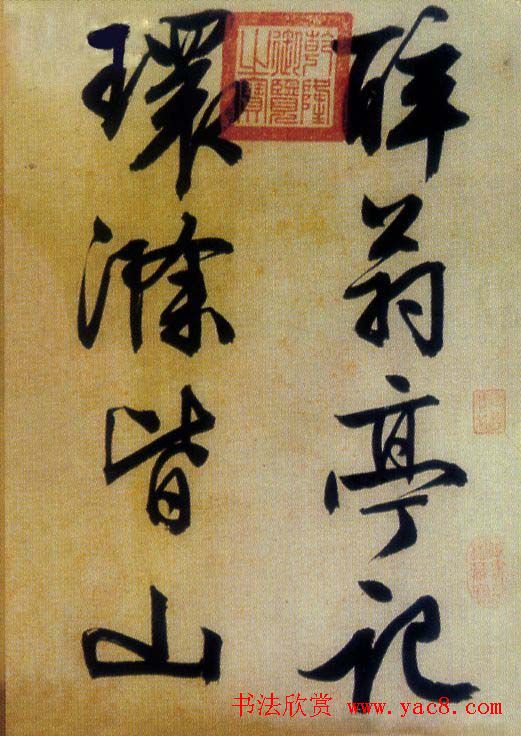 醉翁亭记
環滁皆山
乾隆
御覽
之寶
书法欣赏 www.yac8.com